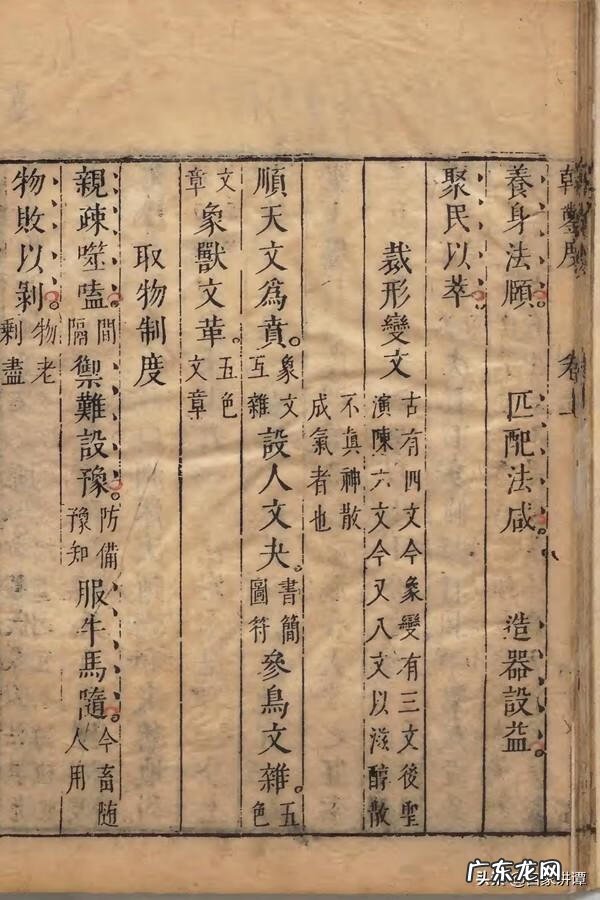 乾鑿度 卷
養身法頤。 匹配法咸。 造器設益。
聚民以萃。
裁形變文 古有四文今象變有三文後聖演陳六文今又八文以滋醇散
不眞神散成氣者也
順天文爲賁。象文互雜設人文夬。書簡圖符參鳥文雜。五色
文章象獸文革。五色文章
取物制度
親疎噬嗑。間隔禦難設豫。防備豫知服牛馬隨。今畜随人用
物敗以剝。物老剩盡
头条 @百家讲谭
广东龙网